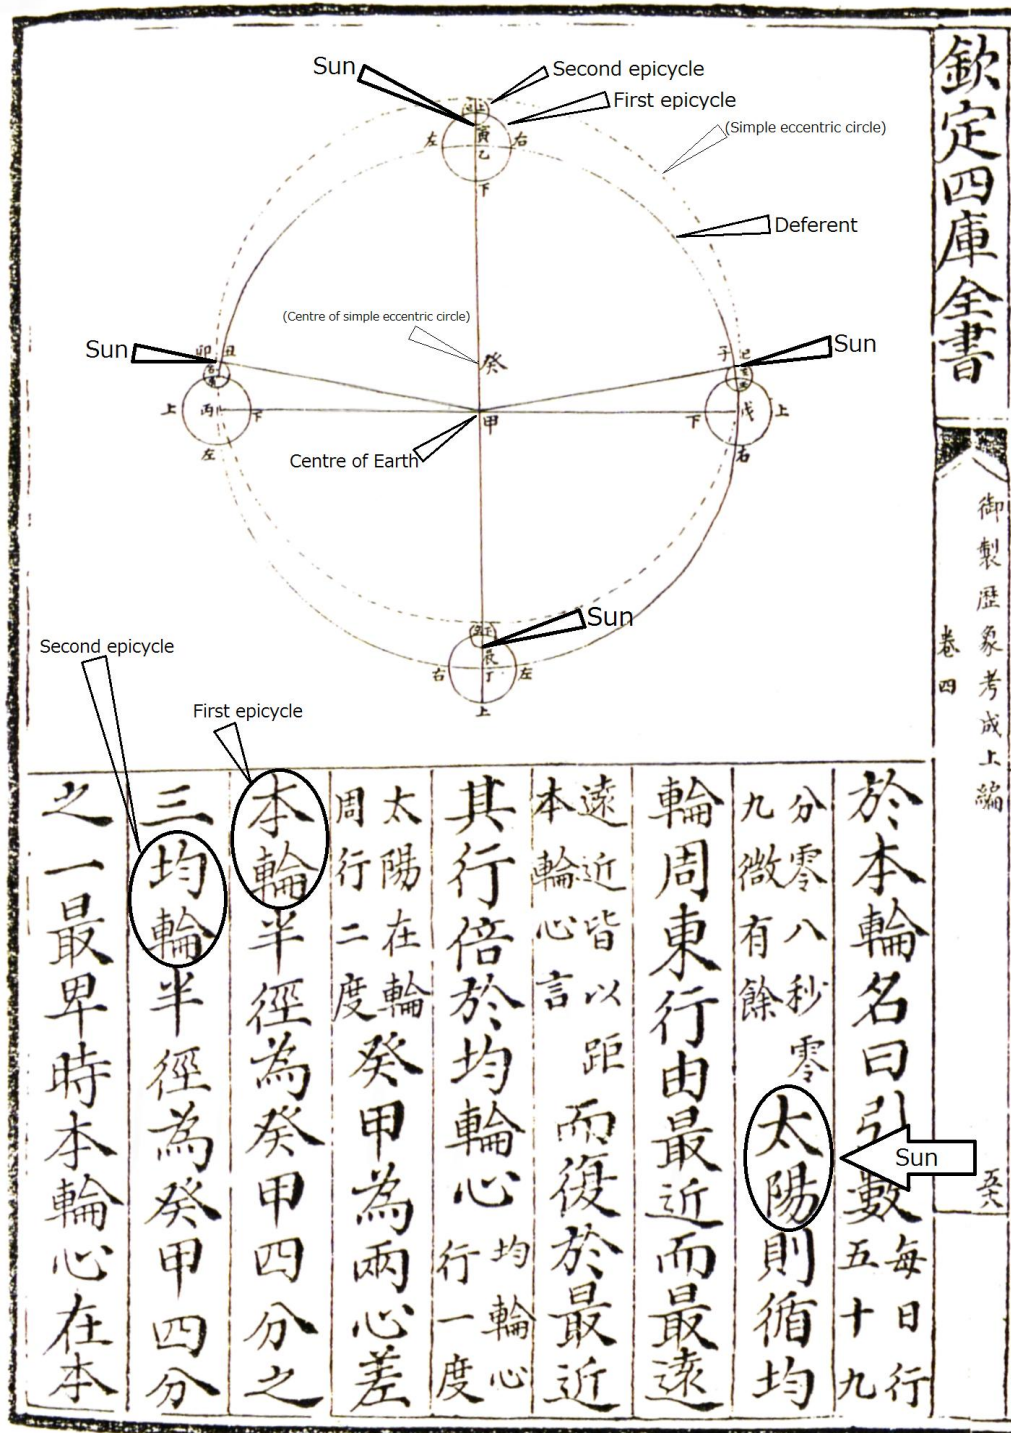 欽定四庫全書
御製歷象考成上編
卷四
Sun
Second epicycle
First epicycle
(Simple eccentric circle)
Deferent
(Centre of simple eccentric circle)
Sun
Sun
Centre of Earth
Sun
左
寅
右
乙
下
癸
卯
丑
子
巳
上
丙
下
甲
下
戊
上
左
右
辰
右
丁
左
上
Second epicycle
First epicycle
Sun
於本輪名曰引數每日行
五十九
分零八秒零
九微有餘
太陽則循均
輪周東行由最近而最遠
遠近皆以距
本輪心言
而復於最近
其行倍於均輪心
均輪心
行一度
太陽在輪
周行二度
癸甲為兩心差
本輪半徑為癸甲四分之
三均輪半徑為癸甲四分
之一最卑時本輪心在本